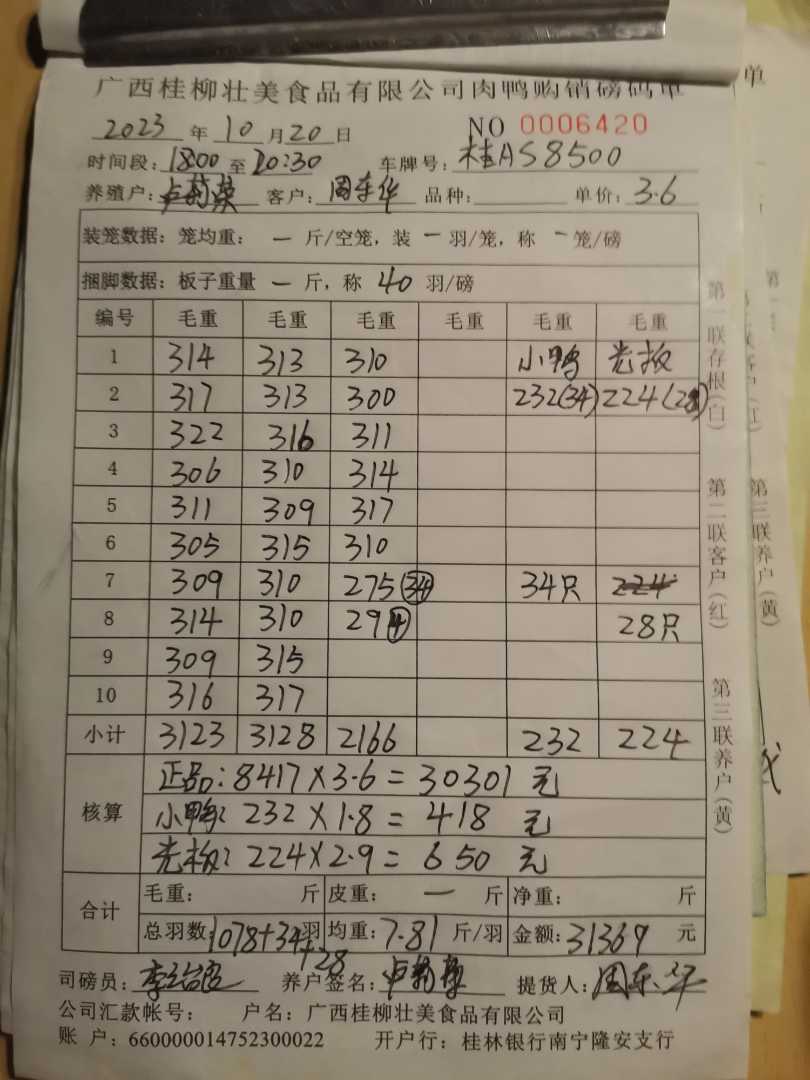 广西桂柳壮美食品有限公司肉鸭购销磅码单
2023 年 10 月 20 日 NO 0006420
时间段: 18:00 至 20:30 车牌号: 桂AS8500
养殖户: 客户: 周东华 品种: 单价: 3.6
装笼数据: 笼均重: 一 斤/空笼, 装 一 羽/笼, 称 一 笼/磅
捆脚数据: 板子重量 一 斤, 称 40 羽/磅
编号 毛重 毛重 毛重 毛重 毛重 毛重
1 314 313 310 小鸭 光板
2 317 313 300 232(34) 224(28)
3 322 316 311
4 306 310 314
5 311 309 317
6 305 315 310
7 309 310 275 (34) 34只 224
8 314 310 29 (4) 28只
9 309 315
10 316 317
小计 3123 3128 2166 232 224
核算
正品: 8417 × 3.6 = 30301 元
小鸭: 232 × 1.8 = 418 元
光板: 224 × 2.9 = 650 元
合计
毛重: 斤 皮重: 一 斤 净重: 斤
总羽数: 1078+34+28 羽 均重: 7.81 斤/羽 金额: 31369 元
司磅员: 养户签名: 提货人: 周东华
公司汇款帐号: 户名: 广西桂柳壮美食品有限公司
账 户: 660000014752300022 开户行: 桂林银行南宁隆安支行
第一联存根(白)
第二联客户(红)
第三联养户(黄)
单
第三联养户(黄)